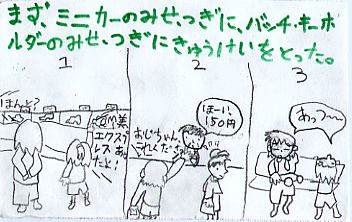 まず、ミニカーのみせ、つぎに、バッチ・キーホ
ルダーのみせ、つぎにきゅうけいをとった。
1
ほんと?
エクスプ
レスあっ
たよ!
2
おじちゃん、
これください
はーい、
150円
3
あつ〜